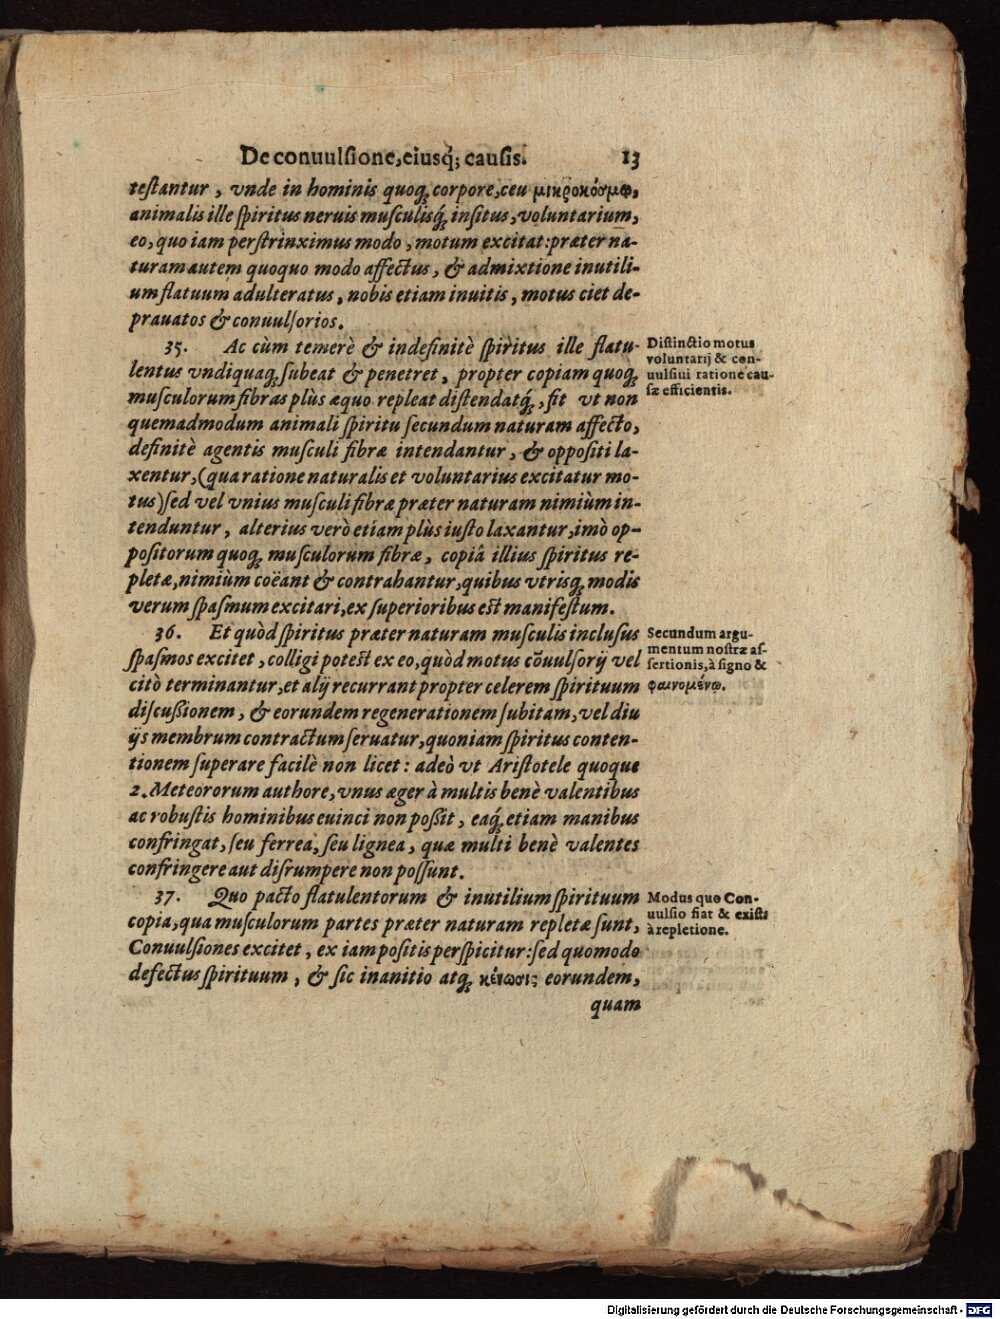 De conuulsione, eiusq́; causis. 13
testantur, vnde in hominis quoq; corpore, ceu μικροκόσμῳ,
animalis ille spiritus neruis musculisq́; insitus, voluntarium,
eo, quo iam perstrinximus modo, motum excitat: præter na-
turam autem quoquo modo affectus, & admixtione inutili-
um flatuum adulteratus, nobis etiam inuitis, motus ciet de-
prauatos & conuulsorios.
35. Ac cùm temerè & indefinitè spiritus ille flatu-
lentus vndiquaq; subeat & penetret, propter copiam quoq;
musculorum fibras plùs æquo repleat distendatq́;, fit vt non
quemadmodum animali spiritu secundum naturam affecto,
definitè agentis musculi fibræ intendantur, & oppositi la-
xentur, (qua ratione naturalis et voluntarius excitatur mo-
tus) sed vel vnius musculi fibræ præter naturam nimiùm in-
tenduntur, alterius verò etiam plùs iusto laxantur, imò op-
positorum quoq; musculorum fibræ, copiâ illius spiritus re-
pletæ, nimiùm coëant & contrahantur, quibus vtrisq; modis
verum spasmum excitari, ex superioribus est manifestum.
Distinctio motus
voluntarij & con-
uulsiui ratione cau-
sæ efficientis.
36. Et quòd spiritus præter naturam musculis inclusus
spasmos excitet, colligi potest ex eo, quòd motus cōuulsorij vel
citò terminantur, et alij recurrant propter celerem spirituum
discussionem, & eorundem regenerationem subitam, vel diu
ijs membrum contractum seruatur, quoniam spiritus conten-
tionem superare facilè non licet: adeò vt Aristotele quoque
2. Meteororum authore, vnus æger à multis benè valentibus
ac robustis hominibus euinci non possit, eaq́; etiam manibus
confringat, seu ferrea, seu lignea, quæ multi benè valentes
confringere aut disrumpere non possunt.
Secundum argu-
mentum nostræ as-
sertionis, à signo &
φαινομένῳ.
37. Quo pacto flatulentorum & inutilium spirituum
copia, qua musculorum partes præter naturam repletæ sunt,
Conuulsiones excitet, ex iam positis perspicitur: sed quomodo
defectus spirituum, & sic inanitio atq; κένωσις eorundem,
quam
Modus quo Con-
uulsio fiat & existat
à repletione.
Digitalisierung gefördert durch die Deutsche Forschungsgemeinschaft - DFG